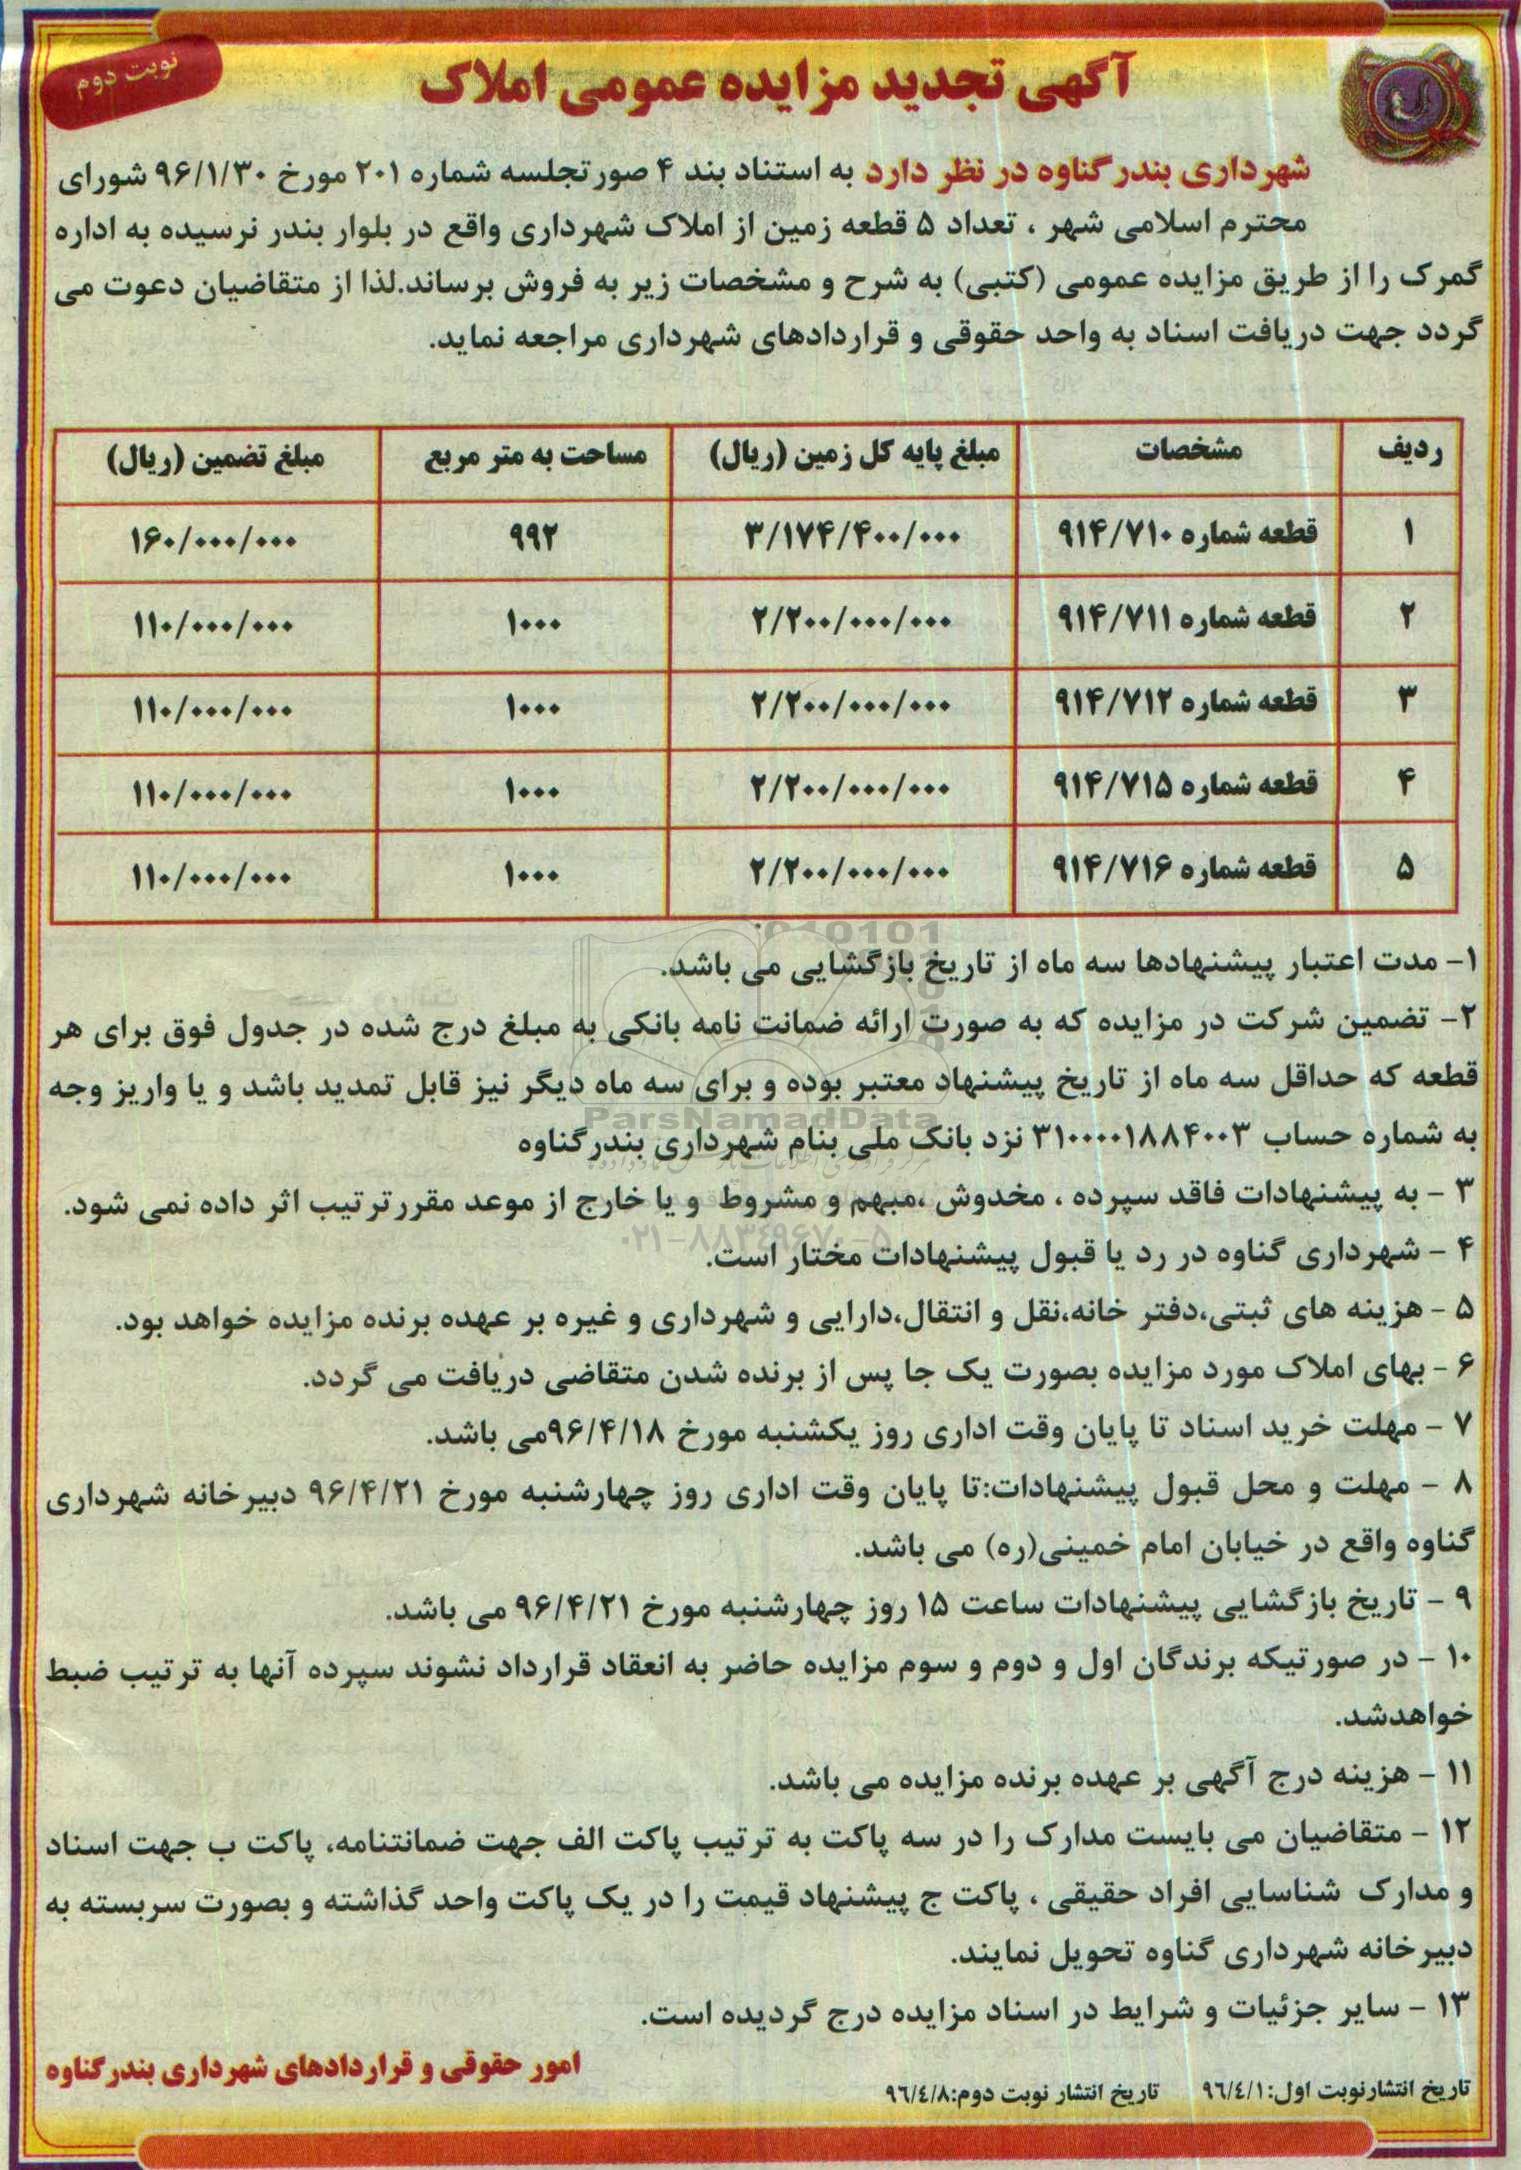 نوبت دوم
آگهی تجدید مزایده عمومی املاک
شهرداری بندر گناوه در نظر دارد به استناد بند ۴ صورتجلسه شماره ۲۰۱ مورخ ۹۶/۱/۳۰ شورای
محترم اسلامی شهر ، تعداد ۵ قطعه زمین از املاک شهرداری واقع در بلوار بندر نرسیده به اداره
گمرک را از طریق مزایده عمومی (کتبی) به شرح و مشخصات زیر به فروش برساند.لذا از متقاضیان دعوت می
گردد جهت دریافت اسناد به واحد حقوقی و قراردادهای شهرداری مراجعه نماید.
ردیف مشخصات مبلغ پایه کل زمین (ریال) مساحت به متر مربع مبلغ تضمین (ریال)
۱ قطعه شماره ۹۱۴/۷۱۰ ۳/۱۷۴/۴۰۰/۰۰۰ ۹۹۲ ۱۶۰/۰۰۰/۰۰۰
۲ قطعه شماره ۹۱۴/۷۱۱ ۲/۲۰۰/۰۰۰/۰۰۰ ۱۰۰۰ ۱۱۰/۰۰۰/۰۰۰
۳ قطعه شماره ۹۱۴/۷۱۲ ۲/۲۰۰/۰۰۰/۰۰۰ ۱۰۰۰ ۱۱۰/۰۰۰/۰۰۰
۴ قطعه شماره ۹۱۴/۷۱۵ ۲/۲۰۰/۰۰۰/۰۰۰ ۱۰۰۰ ۱۱۰/۰۰۰/۰۰۰
۵ قطعه شماره ۹۱۴/۷۱۶ ۲/۲۰۰/۰۰۰/۰۰۰ ۱۰۰۰ ۱۱۰/۰۰۰/۰۰۰
۱- مدت اعتبار پیشنهادها سه ماه از تاریخ بازگشایی می باشد.
۲- تضمین شرکت در مزایده که به صورت ارائه ضمانت نامه بانکی به مبلغ درج شده در جدول فوق برای هر
قطعه که حداقل سه ماه از تاریخ پیشنهاد معتبر بوده و برای سه ماه دیگر نیز قابل تمدید باشد و یا واریز وجه
ParsNamadData
به شماره حساب ۳۱۰۰۰۰۱۸۸۴۰۰۳ نزد بانک ملی بنام شهرداری بندرگناوه
۳ - به پیشنهادات فاقد سپرده ، مخدوش ،مبهم و مشروط و یا خارج از موعد مقررترتیب اثر داده نمی شود.
۰۲۱-۸۸۳۴۹۶۷۰-۵
۴ - شهرداری گناوه در رد یا قبول پیشنهادات مختار است.
۵ - هزینه های ثبتی،دفتر خانه،نقل و انتقال،دارایی و شهرداری و غیره بر عهده برنده مزایده خواهد بود.
۶ - بهای املاک مورد مزایده بصورت یک جا پس از برنده شدن متقاضی دریافت می گردد.
۷ - مهلت خرید اسناد تا پایان وقت اداری روز یکشنبه مورخ ۹۶/۴/۱۸می باشد.
۸ - مهلت و محل قبول پیشنهادات:تا پایان وقت اداری روز چهارشنبه مورخ ۹۶/۴/۲۱ دبیرخانه شهرداری
گناوه واقع در خیابان امام خمینی(ره) می باشد.
۹ - تاریخ بازگشایی پیشنهادات ساعت ۱۵ روز چهارشنبه مورخ ۹۶/۴/۲۱ می باشد.
۱۰ - در صورتیکه برندگان اول و دوم و سوم مزایده حاضر به انعقاد قرارداد نشوند سپرده آنها به ترتیب ضبط
خواهدشد.
۱۱ - هزینه درج آگهی بر عهده برنده مزایده می باشد.
۱۲ - متقاضیان می بایست مدارک را در سه پاکت به ترتیب پاکت الف جهت ضمانتنامه، پاکت ب جهت اسناد
و مدارک شناسایی افراد حقیقی ، پاکت ج پیشنهاد قیمت را در یک پاکت واحد گذاشته و بصورت سربسته به
دبیرخانه شهرداری گناوه تحویل نمایند.
۱۳ - سایر جزئیات و شرایط در اسناد مزایده درج گردیده است.
امور حقوقی و قراردادهای شهرداری بندرگناوه
تاریخ انتشارنوبت اول:۹۶/۴/۱ تاریخ انتشار نوبت دوم:۹۶/۴/۸